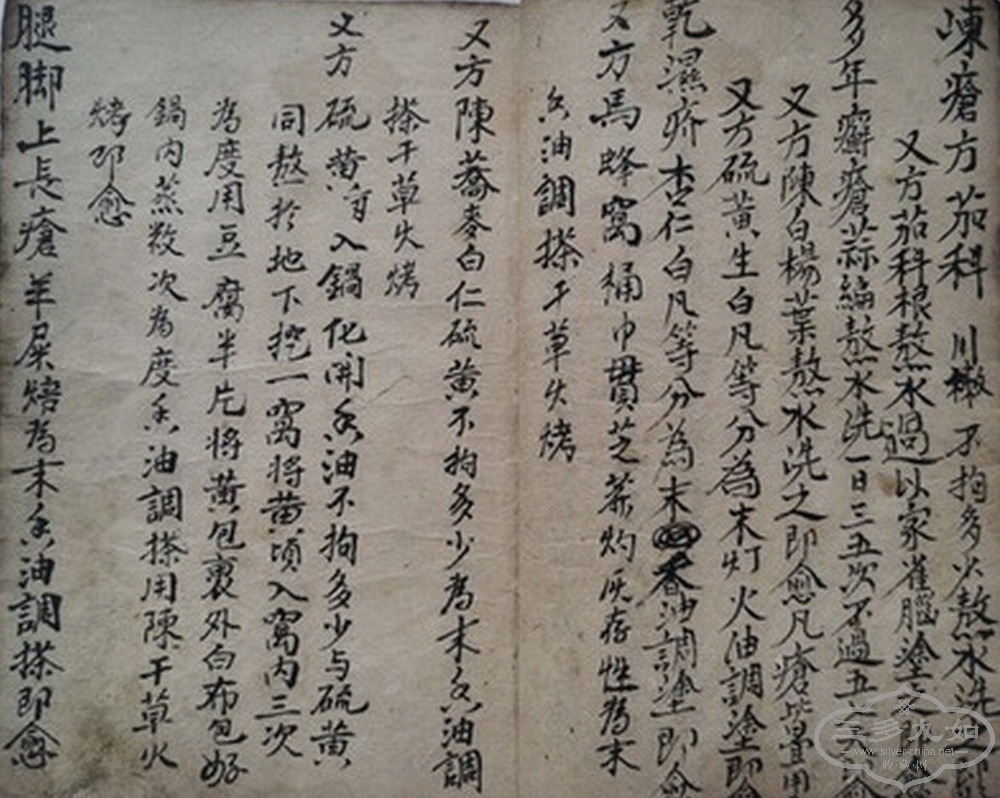 崠瘡方茄科 川椒 不拘多少熬水洗
又方茄科根熬水過以家雀腦塗之即愈
多年癬瘡蒜編熬水洗一日三五次不過五
又方陳白楊葉熬水洗之即愈凡瘡皆
又方硫黄生白凡等分為末灯火油調塗即
乾濕疥杏仁白凡等分為末香油調塗即愈
又方馬蜂窩桶巾貫芝蔴灼灰存性為末
香油調搽干草火烤
又方陳蕎麥白仁硫黄不拘多少為末香油調
搽干草火烤
又方 硫黄 入鍋化開香油不拘多少与硫黄
同熬於地下挖一窩將黄頃入窩内三次
為度用豆腐半片將黄包裹外白布包好
鍋内蒸数次為度香油調搽用陳干草火
烤即愈
腿脚上長瘡羊屎焙為末香油調搽即愈
www.silver-china.net